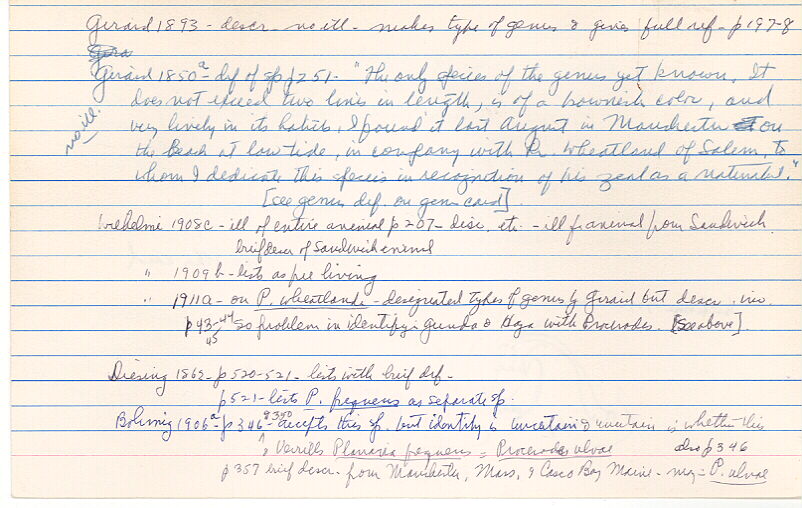 Girard 1893 - descr - no ill - makes type of genus & gives full ref - p 197-8
Gira
Girard 1850a - def of sp p 251 - "The only species of the genus yet known. It
does not exceed two lines in length, is of a brownish color, and
very lively in its habits. I found it last August in Manchester on
no ill.
the Beach at low tide, in company with Dr. Wheatland of Salem, to
whom I dedicate this species in recognition of his zeal as a naturalist."
[see genus def. on genus card]
Wilhelmi 1908c - ill of entire animal p 207 - disc, etc. - ill f animal from Sandwich
brief descr of Sandwich animal
" 1909b - lists as free living
" 1911a - on P. wheatlandi - designated types of genus by Girard but descr. inc.
p 43-44 so problem in identifying Gunda & Haga with Procerodes. [See above].
45
Diesing 1862 - p 520-521 - lists with brief def -
p 521 - lists P. frequens as separate sp.
Bohmig 1906a - p 346 & 350 accepts this sp. but identity is uncertain & uncertain is whether this
& Verrill's Planaria frequens = Procerodes ulvae also p 346
p 357 brief descr. from Manchester, Mass, & Casco Bay Maine - may = P. ulvae